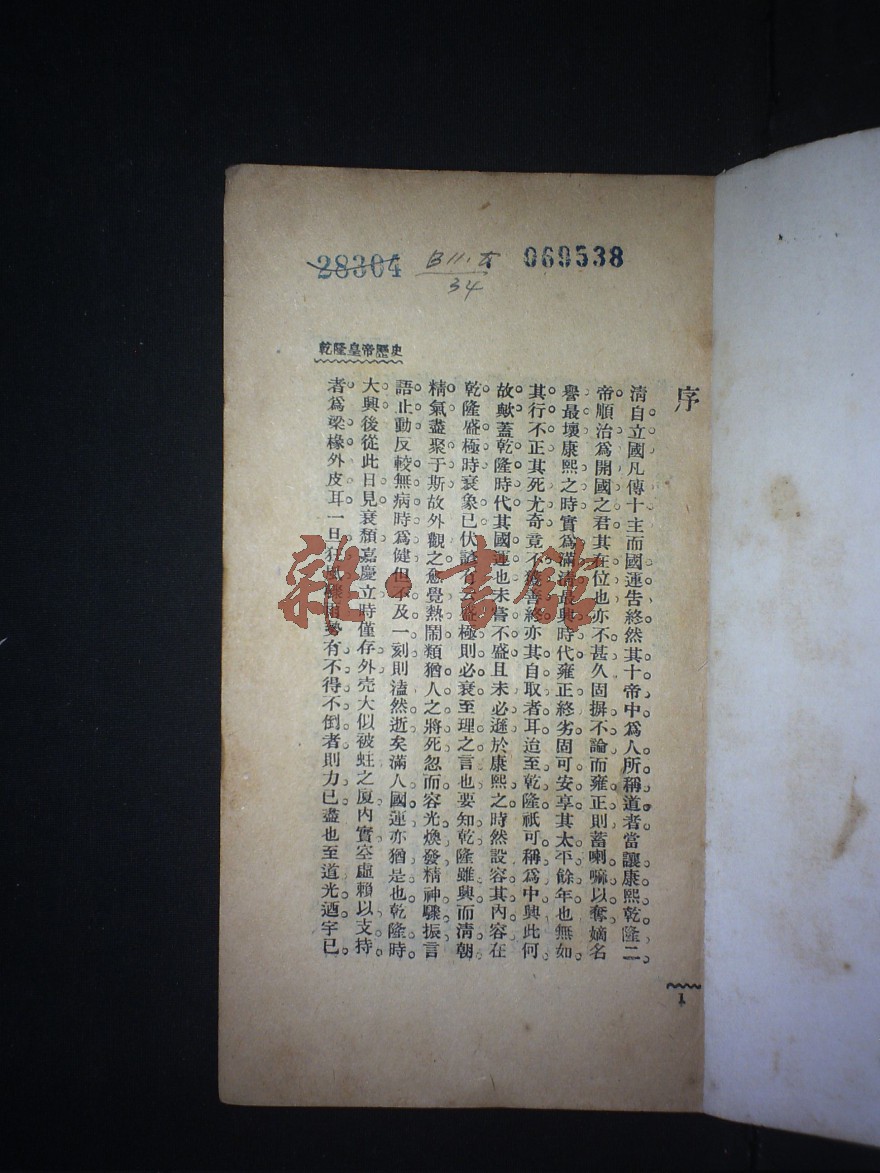 28304
B11.古
34
069538
乾隆皇帝歷史
序
清自立國凡傳十主而國運告終然其十帝中爲人所稱道者當讓康熙乾隆二
帝順治爲開國之君其在位也亦不甚久固摒不論而雍正則蓄喇嘛以奪嫡名
譽最壞康熙之時實爲滿清最興時代雍正終劣固可安享其太平餘年也無如
其行不正其死尤奇竟不獲善終亦其自取者耳迨至乾隆祇可稱爲中興此何
故歟蓋乾隆時代其國運也未嘗不盛且未必遜於康熙之時然設容其內容在
乾隆盛極時衰象已伏諺有云盛極則必衰至理之言也要知乾隆雖興而清朝
精氣盡聚于斯故外觀之愈覺熱鬧類猶人之將死忽而容光煥發精神驟振言
語止動反較無病時爲健但不及一刻則溘然逝矣滿人國運亦猶是也乾隆時
大興後從此日見衰頹嘉慶立時僅存外壳大似被蛀之厦內實空虛賴以支持
者爲梁椽外皮耳一旦狂風驟雨勢有不得不倒者則力已盡也至道光迺宇已
1
雜·書館